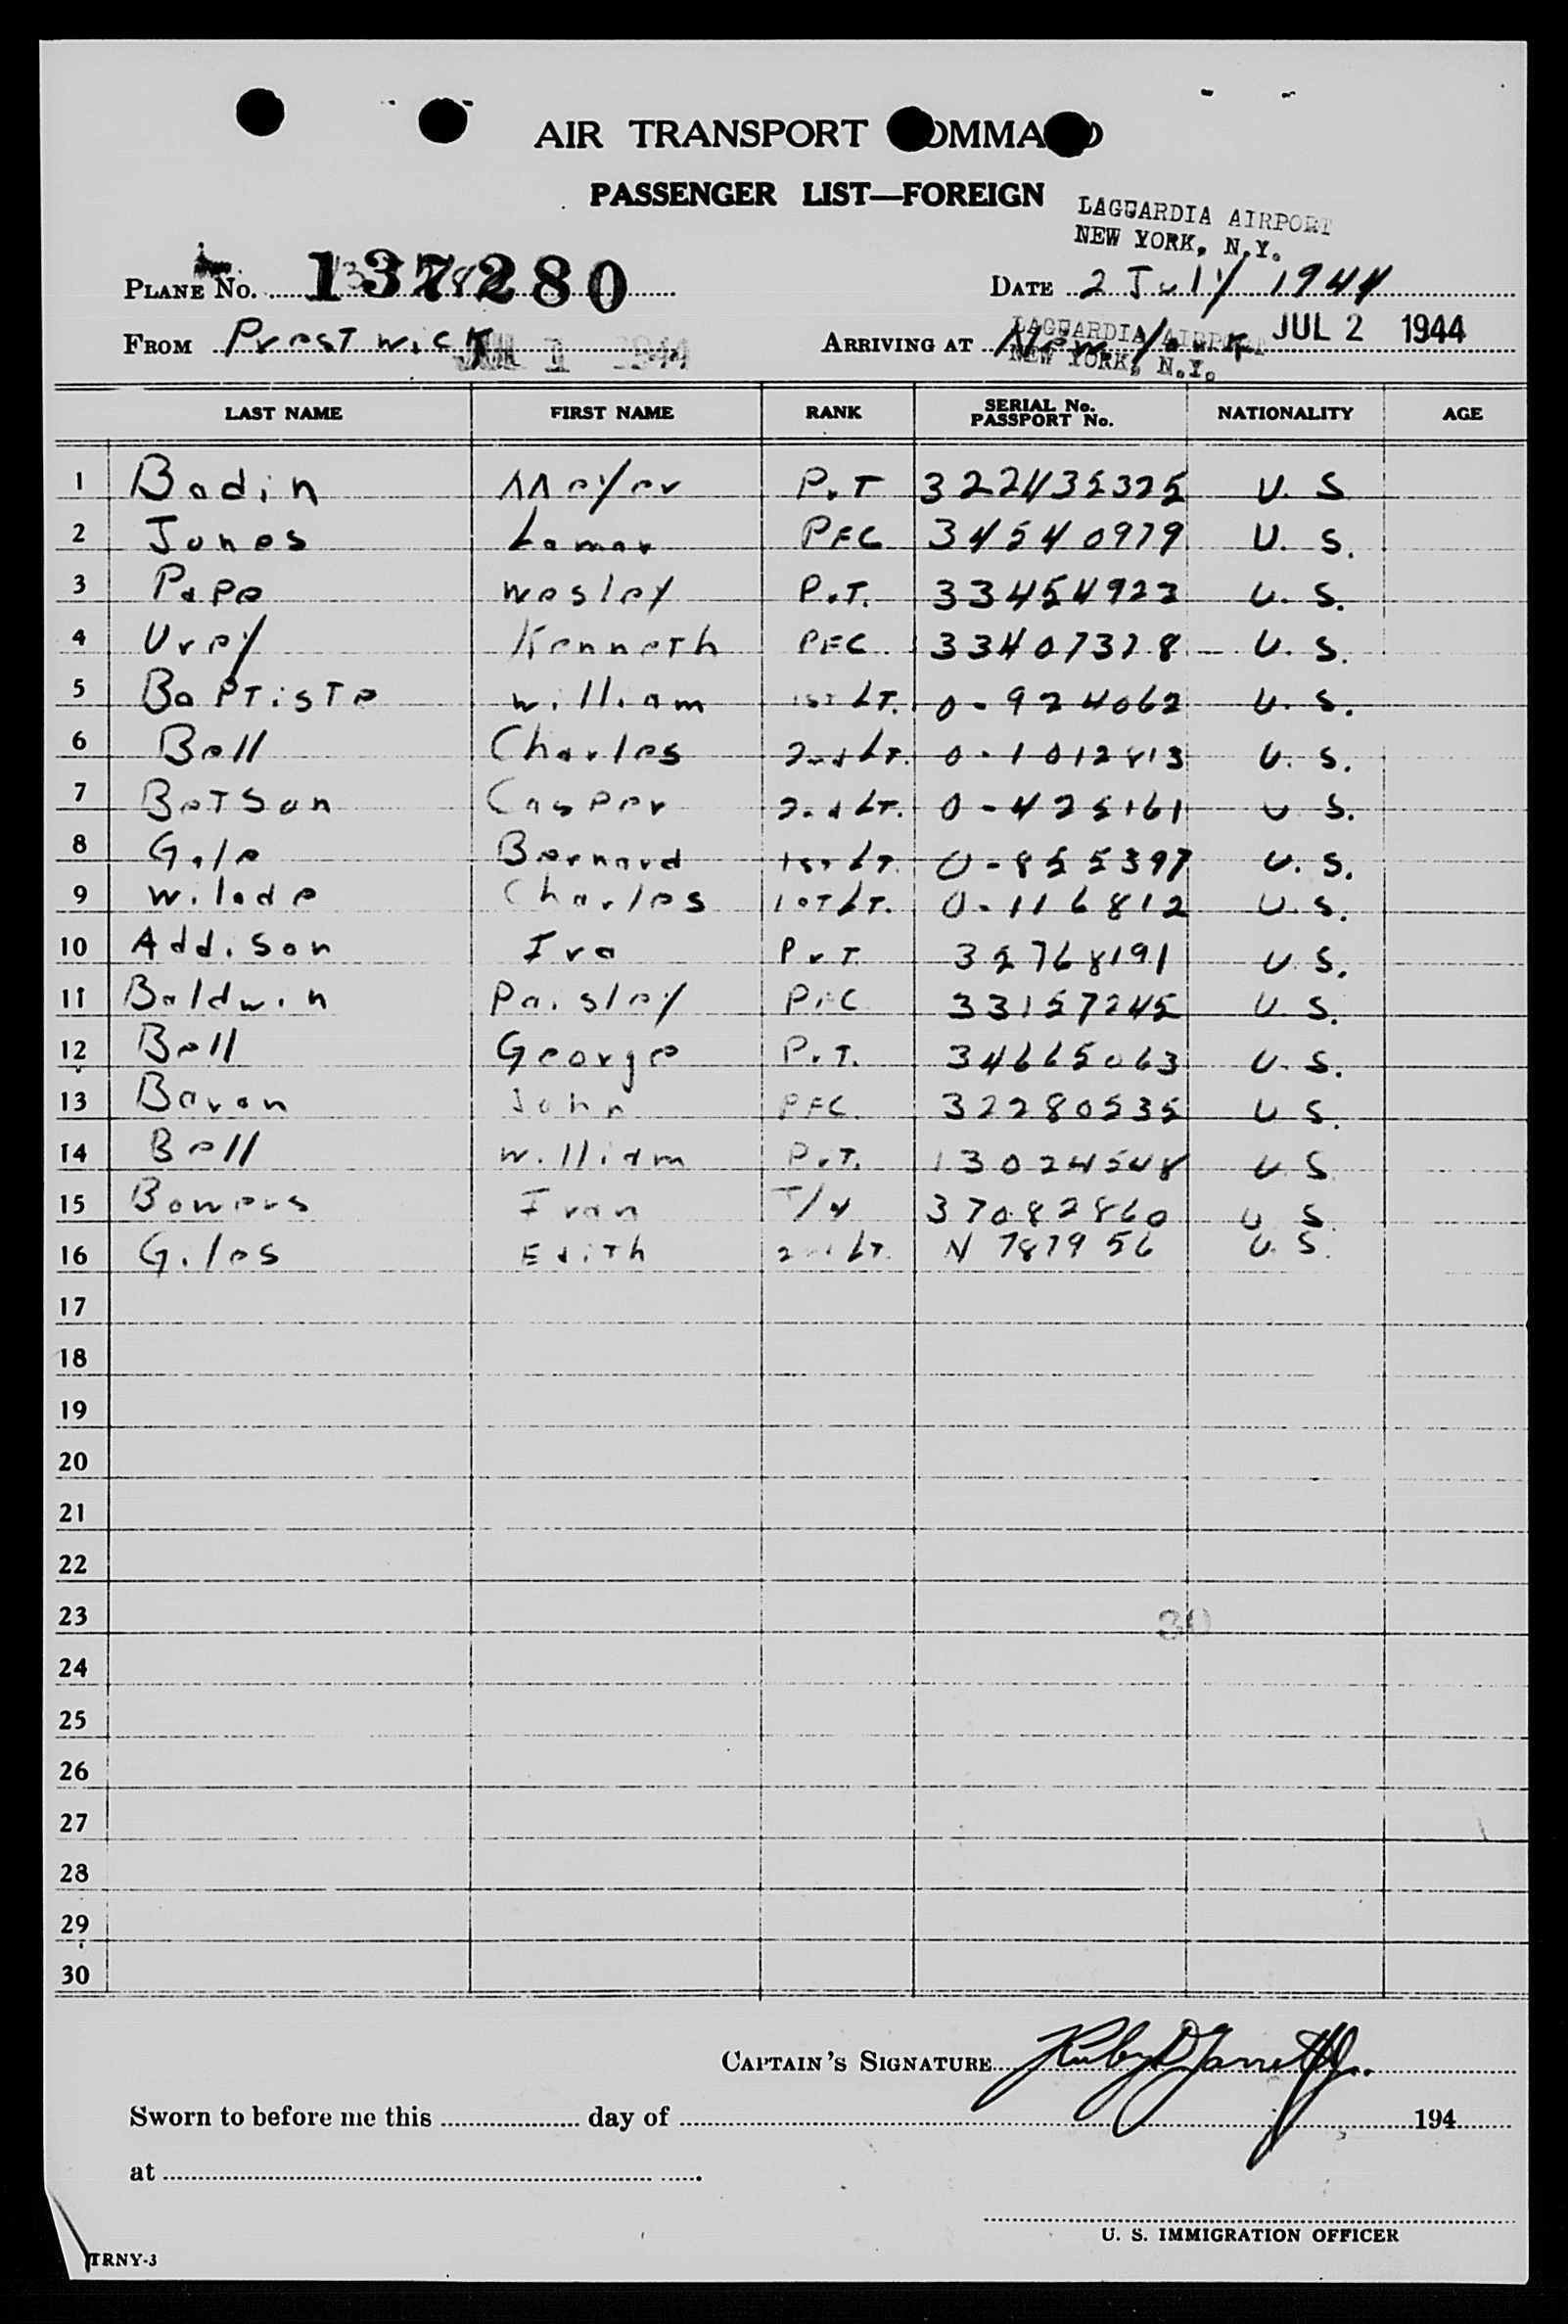 AIR TRANSPORT COMMAND
PASSENGER LIST—FOREIGN
LAGUARDIA AIRPORT
NEW YORK, N.Y.
PLANE No. 137280
DATE 2 July 1944
FROM Prestwick JUL 1 1944
ARRIVING AT New York JUL 2 1944
LAGUARDIA AIRPORT
NEW YORK, N.Y.
LAST NAME FIRST NAME RANK SERIAL No. PASSPORT No. NATIONALITY AGE
1 Bodin Meyer PvT 322435325 U. S
2 Jones Lamar PFC 34540979 U. S.
3 Pape Wesley PvT. 33454923 U. S.
4 Urey Kenneth PFC 33407328 U. S.
5 Baptiste William 1st LT. 0-924062 U. S.
6 Bell Charles 2nd LT. 0-1012813 U. S.
7 Betson Casper 2nd LT. 0-425161 U S.
8 Gale Bernard 1st LT. 0-855397 U. S.
9 Wilade Charles 1sT LT. 0-116812 U. S.
10 Addison Ira PvT. 32768191 U. S.
11 Baldwin Paisley PFC 33157245 U. S.
12 Bell George PvT. 34665063 U. S.
13 Baron John PFC. 32280535 U S.
14 Bell William PvT. 13024548 U S
15 Bowers Ivan T/4 37082860 U S.
16 Giles Edith 2nd LT. N 787956 U. S.
17
18
19
20
21
22
23 30
24
25
26
27
28
29
30
CAPTAIN'S SIGNATURE Ruby D Garrett Jr.
Sworn to before me this day of 194
at
U. S. IMMIGRATION OFFICER
TRNY-3